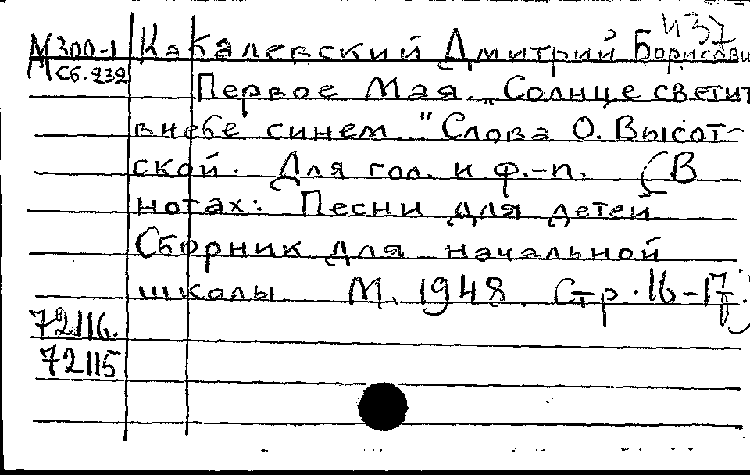 и37
М300-1 Кабалевский Дмитрий Борисови
МСб.232
Первое Мая. „Солнце светит
в небе синем." Слова О. Высот-
ской. Для гол. и ф.-п. (В
нотах: Песни для детей
Сборник для начальной
школы М. 1948. Стр. 16-17.)
72116.
72115